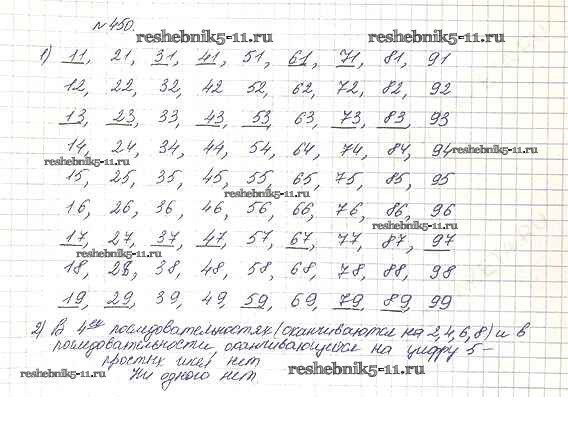 №450.
reshebnik5-11.ru reshebnik5-11.ru
1) 11, 21, 31, 41, 51, 61, 71, 81, 91
12, 22, 32, 42, 52, 62, 72, 82, 92
13, 23, 33, 43, 53, 63, 73, 83, 93
14, 24, 34, 44, 54, 64, 74, 84, 94
reshebnik5-11.ru reshebnik5-11.ru
15, 25, 35, 45, 55, 65, 75, 85, 95
reshebnik5-11.ru
16, 26, 36, 46, 56, 66, 76, 86, 96
reshebnik5-11.ru
17, 27, 37, 47, 57, 67, 77, 87, 97
reshebnik5-11.ru
18, 28, 38, 48, 58, 68, 78, 88, 98
19, 29, 39, 49, 59, 69, 79, 89, 99
2) В 4ех последовательностях (оканчиваются на 2,4,6,8) и в
последовательности оканчивающейся на цифру 5 -
простых чисел нет
reshebnik5-11.ru Ни одного нет. reshebnik5-11.ru